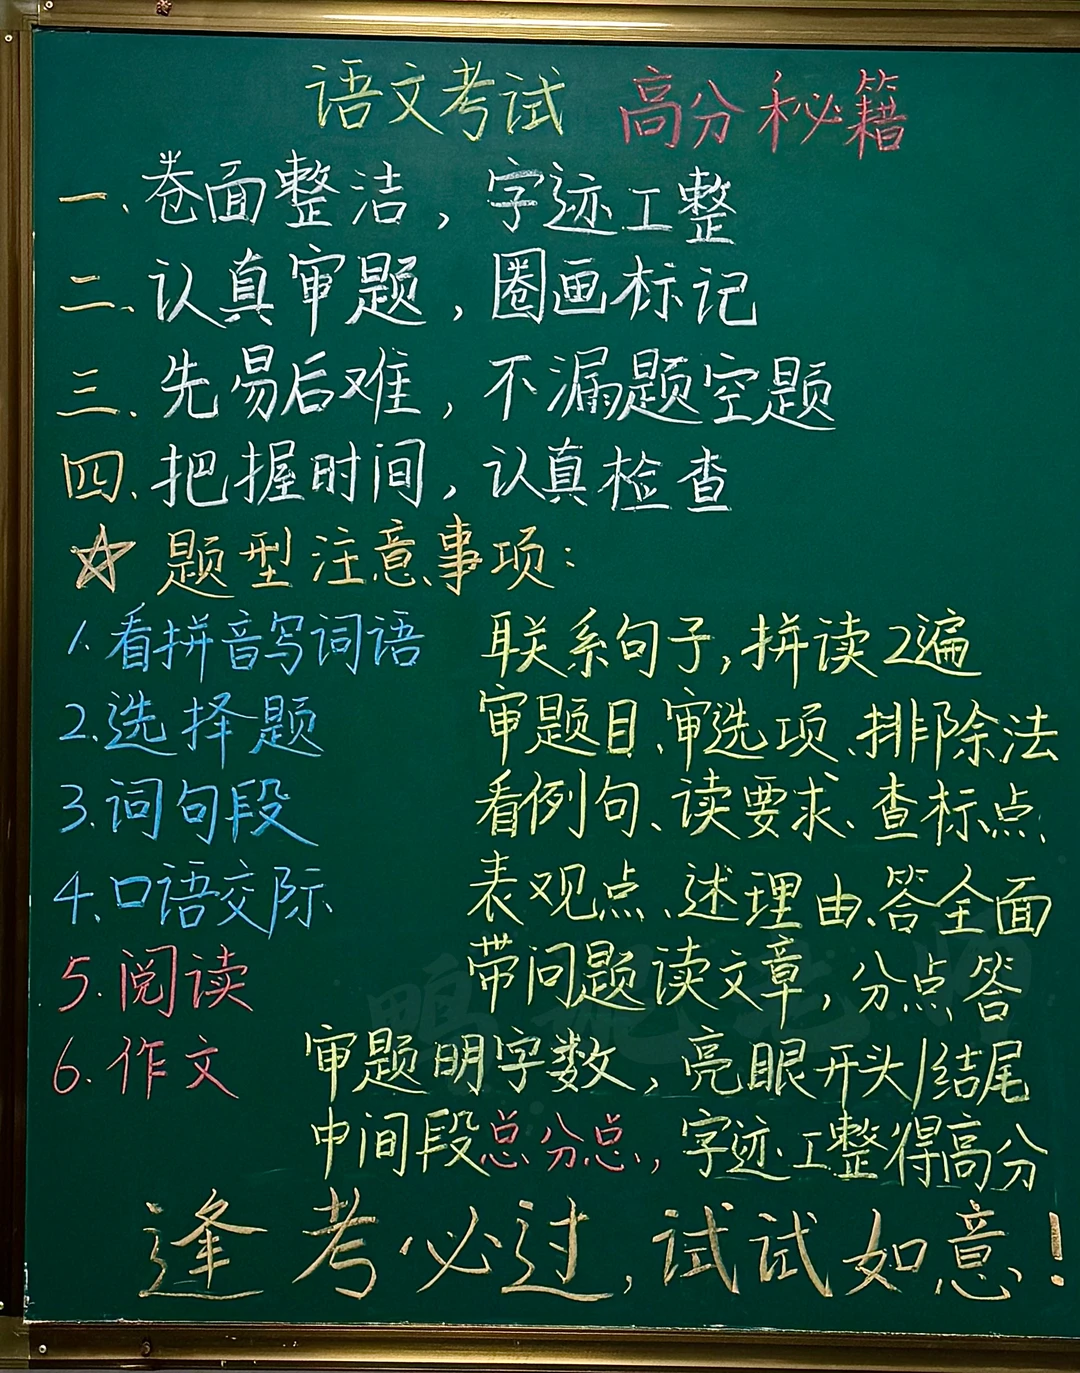 语文考试 高分秘籍
一、卷面整洁，字迹工整
二、认真审题，圈画标记
三、先易后难，不漏题空题
四、把握时间，认真检查
☆ 题型注意事项：
1.看拼音写词语 联系句子，拼读2遍
2.选择题 审题目、审选项、排除法
3.词句段 看例句、读要求、查标点、
4.口语交际 表观点、述理由、答全面
5.阅读 带问题读文章，分点答
6.作文 审题明字数，亮眼开头/结尾
中间段总分总，字迹工整得高分
逢考必过，试试如意！